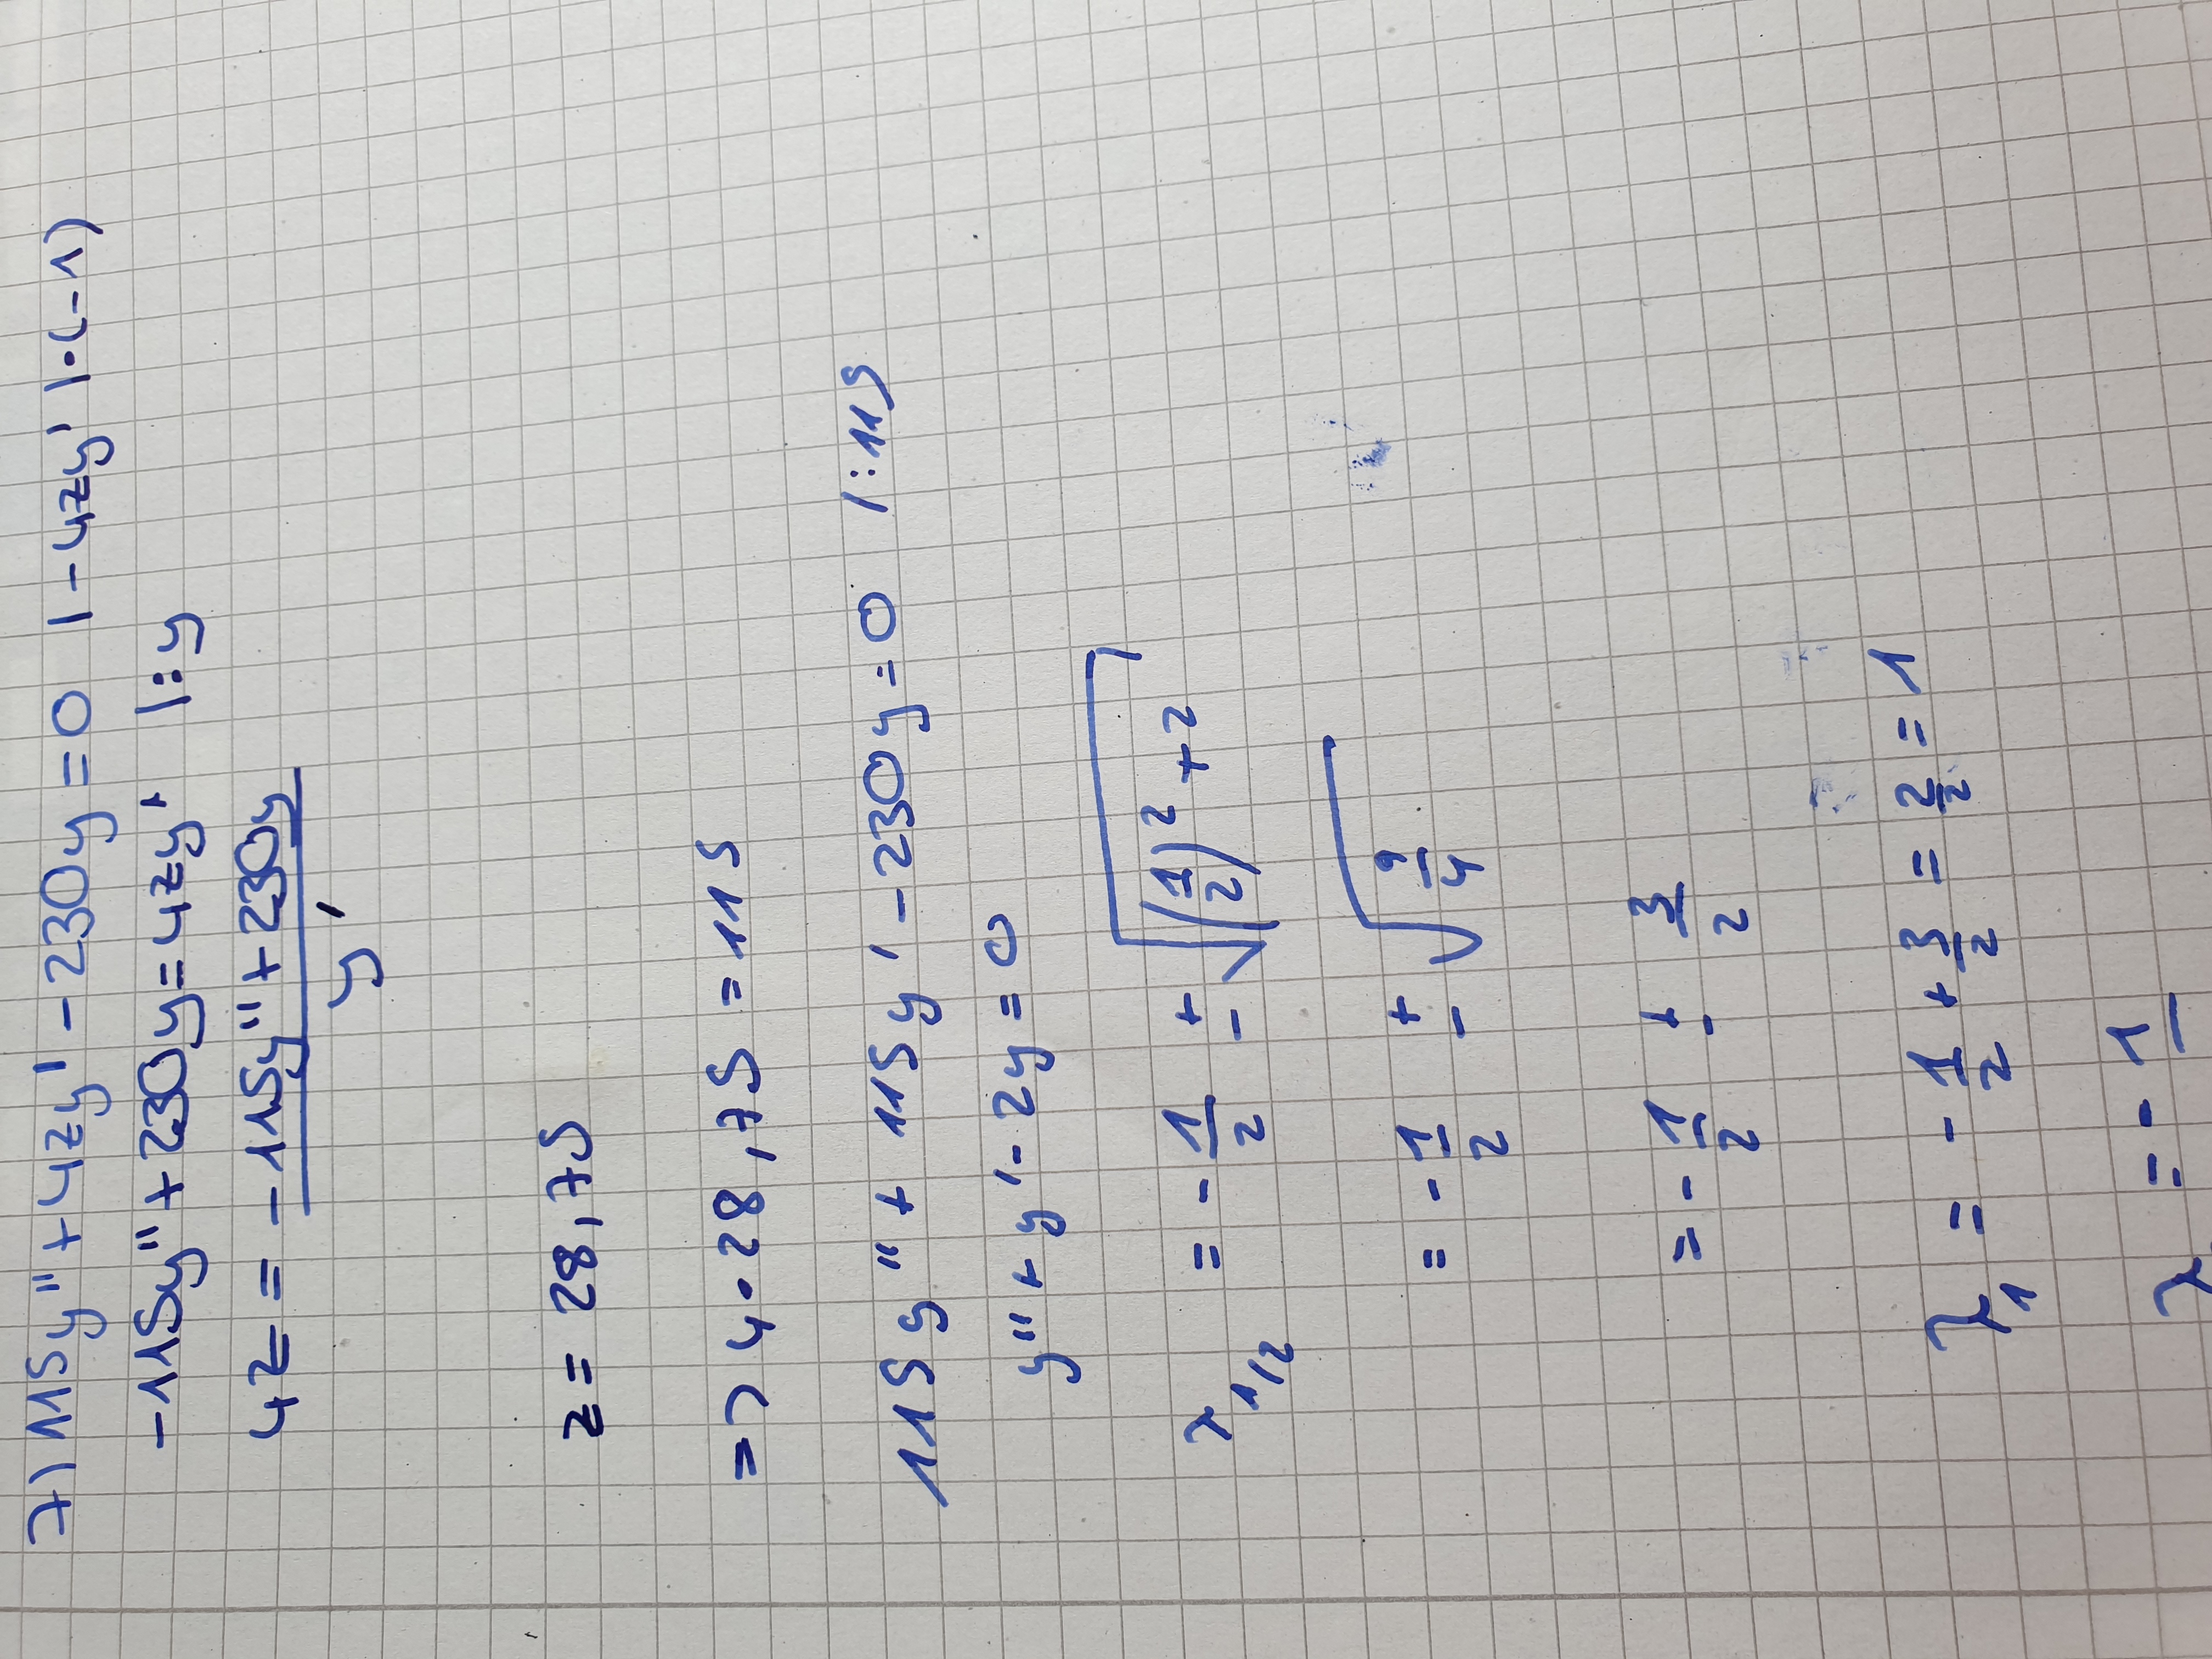 7) 115y" + 4zy' - 230y = 0 | - 4zy' | · (-1)
-115y" + 230y = 4zy' | : y
4z = -115y" + 230y / y'
z = 28,75
=> 4 · 28,75 = 115
115y" + 115y' - 230y = 0 | : 115
y" + y' - 2y = 0
λ1/2 = - 1/2 ± √((1/2)² + 2)
= - 1/2 ± √(9/4)
= - 1/2 ± 3/2
λ1 = - 1/2 + 3/2 = 2/2 = 1
λ = - 1